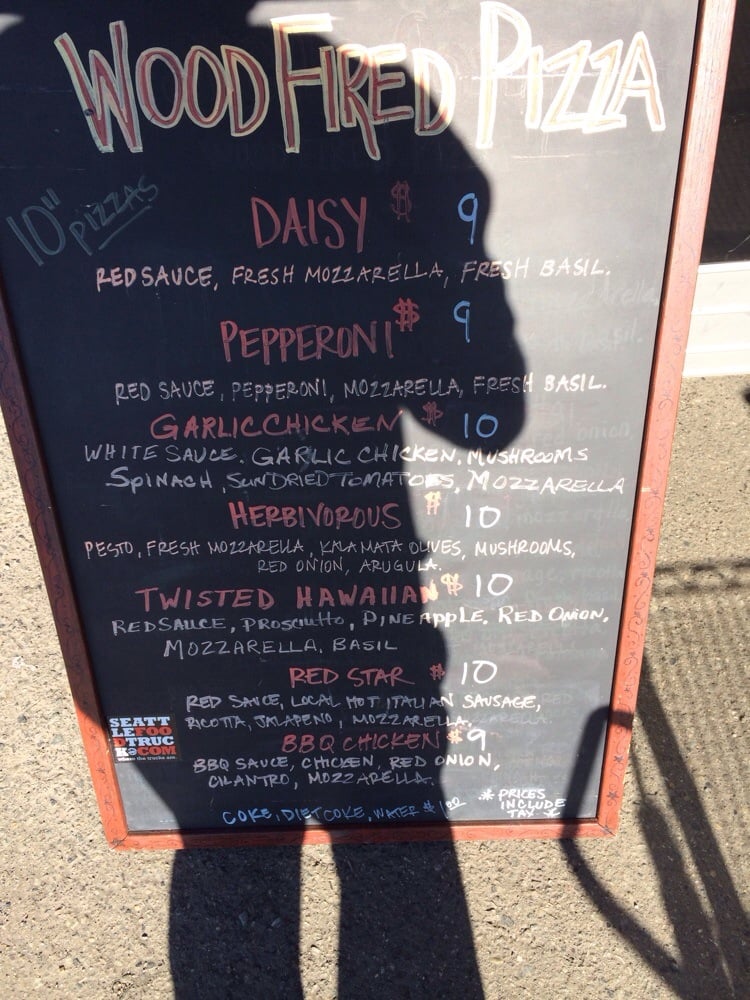 WOOD FIRED PIZZA
10" PIZZAS
DAISY $ 9
RED SAUCE, FRESH MOZZARELLA, FRESH BASIL.
PEPPERONI $ 9
RED SAUCE, PEPPERONI, MOZZARELLA, FRESH BASIL.
GARLIC CHICKEN $ 10
WHITE SAUCE. GARLIC CHICKEN, MUSHROOMS
SPINACH, SUNDRIED TOMATOES, MOZZARELLA
HERBIVOROUS $ 10
PESTO, FRESH MOZZARELLA, KALAMATA OLIVES, MUSHROOMS,
RED ONION, ARUGULA.
TWISTED HAWAIIAN $ 10
RED SAUCE, PROSCIUTTO, PINEAPPLE, RED ONION,
MOZZARELLA, BASIL
RED STAR $ 10
RED SAUCE, LOCAL HOT ITALIAN SAUSAGE,
RICOTTA, JALAPENO, MOZZARELLA.
BBQ CHICKEN $9
BBQ SAUCE, CHICKEN, RED ONION,
CILANTRO, MOZZARELLA.
COKE, DIET COKE, WATER $ 1.00
* PRICES
INCLUDE
TAX
SEATT
LEFOO
DTRUC
K.COM
where the trucks are.